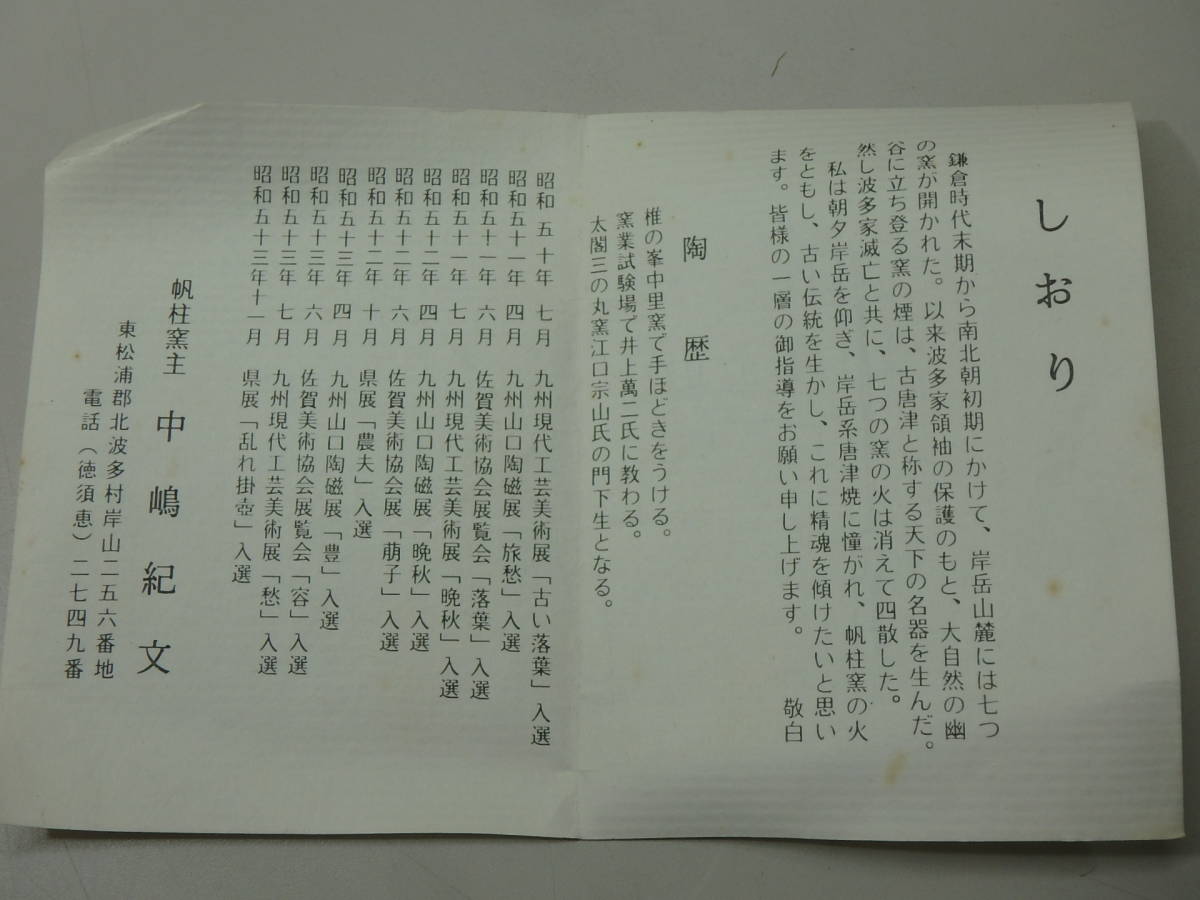 しおり
鎌倉時代末期から南北朝初期にかけて、岸岳山麓には七つ
の窯が開かれた。以来波多家領袖の保護のもと、大自然の幽
谷に立ち登る窯の煙は、古唐津と称する天下の名器を生んだ。
然し波多家滅亡と共に、七つの窯の火は消えて四散した。
私は朝夕岸岳を仰ぎ、岸岳系唐津焼に憧がれ、帆柱窯の火
をともし、古い伝統を生かし、これに精魂を傾けたいと思い
ます。皆様の一層の御指導をお願い申し上げます。
敬白
陶歴
椎の峯中里窯で手ほどきをうける。
窯業試験場で井上萬二氏に教わる。
太閤三の丸窯江口宗山氏の門下生となる。
昭和五十年七月 九州現代工芸美術展「古い落葉」入選
昭和五十一年四月 九州山口陶磁展「旅愁」入選
昭和五十一年六月 佐賀美術協会展覧会「落葉」入選
昭和五十一年七月 九州現代工芸美術展「晩秋」入選
昭和五十二年四月 九州山口陶磁展「晩秋」入選
昭和五十二年六月 佐賀美術協会展「萠子」入選
昭和五十二年十月 県展「農夫」入選
昭和五十三年四月 九州山口陶磁展「豊」入選
昭和五十三年六月 佐賀美術協会展覧会「容」入選
昭和五十三年七月 九州現代工芸美術展「愁」入選
昭和五十三年十一月 県展「乱れ掛壺」入選
帆柱窯主 中嶋紀文
東松浦郡北波多村岸山二五六番地
電話(徳須恵)二七四九番